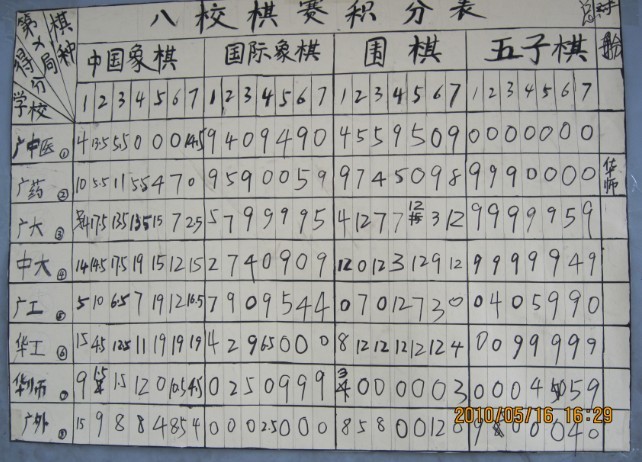 八校棋赛积分表
棋种 第×局得分 学校 中国象棋 国际象棋 围棋 五子棋
1 2 3 4 5 6 7 1 2 3 4 5 6 7 1 2 3 4 5 6 7 1 2 3 4 5 6 7
广中医① 4 13.5 5.5 0 0 0 14.5 9 4 0 9 4 9 0 4 5 5 9 5 0 9 0 0 0 0 0 0 0
广药② 10 5.5 11 5.5 4 7 0 9 5 9 0 0 5 9 9 7 4 5 0 9 8 9 9 9 0 0 0 0 华师
广大③ 17.5 13.5 13.5 15 7 2.5 5 7 9 9 9 9 5 4 12 7 7 12 3 12 9 9 9 9 9 5 9
中大④ 14 14.5 17.5 19 15 12 15 2 7 4 0 9 0 9 12 0 12 3 12 9 12 9 9 9 9 9 4 9
广工⑤ 5 10 6.5 7 19 12 16.5 7 9 0 9 5 4 4 0 7 0 12 7 3 0 0 4 0 5 9 9 0
华工⑥ 15 4.5 12.5 11 19 19 19 4 2 9 6.5 0 0 0 8 12 12 12 12 12 4 0 0 9 9 9 9 9
华师 9 15 12 0 10.5 4.5 0 2 5 0 9 9 9 0 0 0 0 0 3 0 0 0 4 5 5 9
广外 15 9 8 8 4 8.5 4 0 0 0 2.5 0 0 0 8 5 8 0 0 12 0 9 8 0 0 0 4 0
2010/05/16 16:29